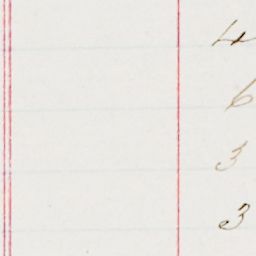 4
6
3
3